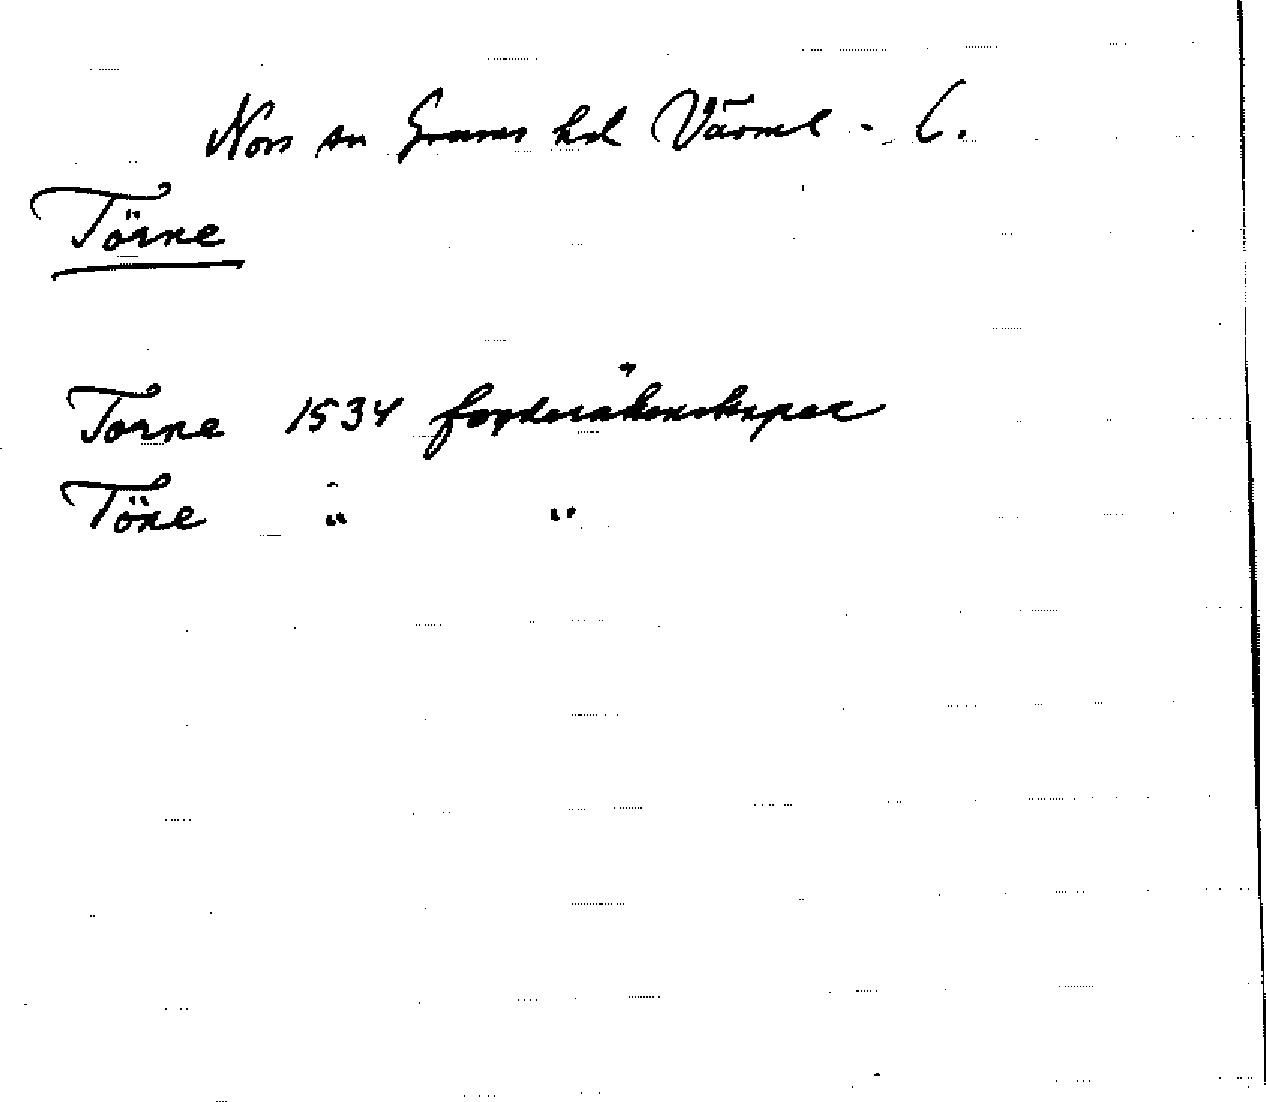 Nors sn Grums hd Värml - C.
Törne
Torne 1534 fogderäkenskaper
Töne " "